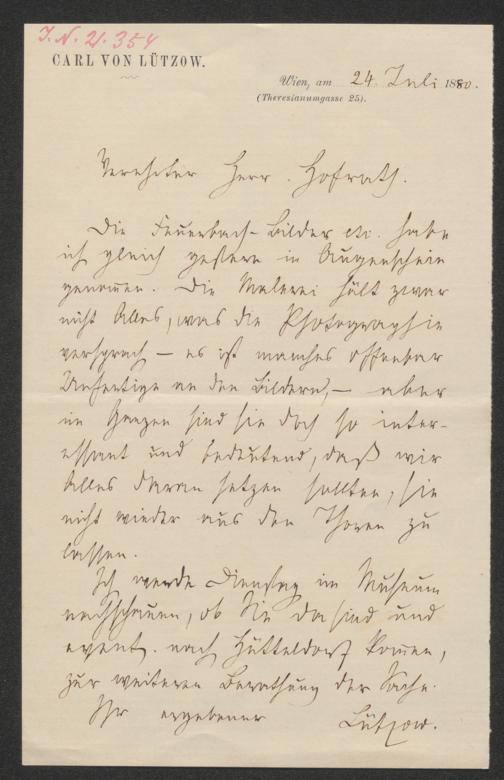 I. N. 21.354
CARL VON LÜTZOW.
Wien, am 24. Juli 1880.
(Theresianumgasse 25).
Verehrter Herr Hofrath.
Die Feuerbach-Bilder etc. habe
ich gleich gestern in Augenschein
genommen. Die Malerei hält zwar
nicht Alles, was die Photographie
versprach – es ist manches offenbar
Unfertige an den Bildern, – aber
im Ganzen sind sie doch so inter-
essant und bedeutend, daß wir
Alles daran setzen sollten, sie
nicht wieder aus den Thoren zu
lassen.
Ich werde Dienstag im Museum
nachschauen, ob Sie da sind und
event. nach Hütteldorf kommen,
zur weiteren Berathung der Sache.
Ihr ergebener Lützow.